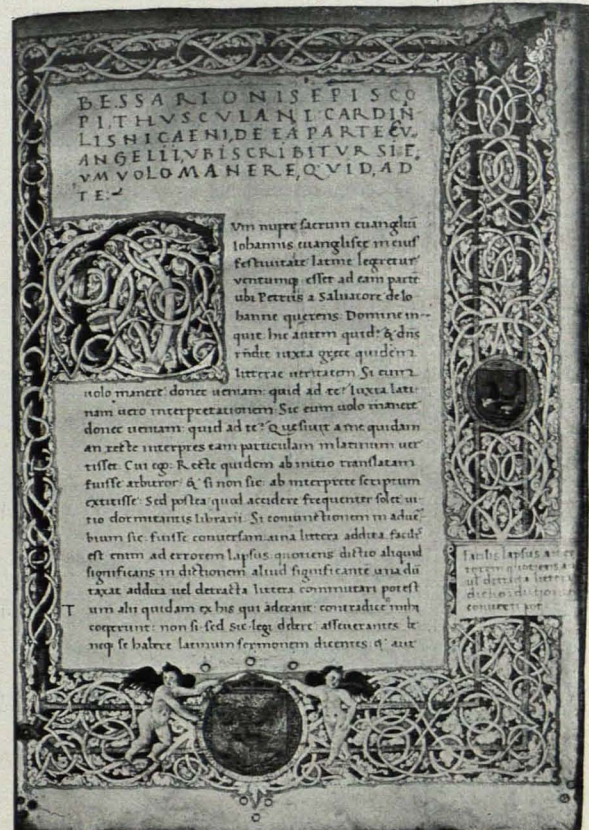 BESSARIONIS EPISCO
PI, THVSCVLANI CARDIN̄
LIS NICAENI, DE EA PARTE EV
ANGELII, VBI SCRIBITVR SI E
VM VOLO MANERE, QVID, AD
TE:
CVm nuper sacrum euangliū
Iohannis euangliste in eius
festiuitate latine legeretur
ventumq; esset ad eam partē
ubi Petrus a Saluatore de Io
hanne querens: Domine in-
quit hic autem quid: & dn̄s
rn̄dit iuxta grece quidem
litterae ueritatem Si eum
uolo manere donec ueniam: quid ad te? Iuxta lati-
nam uero interpretationem: Sic eum uolo manere
donec ueniam: quid ad te? Quesiuit a me quidam
an recte interpres eam particulam in latinum uer
tisset. Cui ego: Recte quidem ab initio translatam
fuisse arbitror: & si non sic ab interprete scriptum
extitisse: Sed postea quod accidere frequenter solet ui-
tio dormitantis librarii. Si coniunctionem in aduer
bium sic fuisse conuersam: una littera addita. facilis
est enim ad errorem lapsus quotiens dictio aliquid
significans in dictionem aliud significantē una dū
taxat addita uel detracta littera commutari potest
Tum alii quidam ex his qui aderant: contradicē mihi
coeperunt: non si: sed sic legi debere asseuerantes be
neq; se habere latinum sermonem dicentes: q̄ aut
facilis lapsus ad er
rorem quotiens a
ut detracta littera
dictio dictione
conuertitor